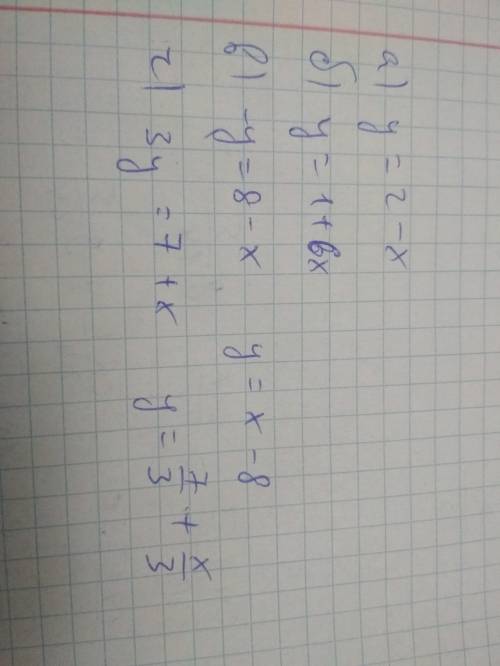 а) y = 2 - x
б) y = 1 + 6x
в) -y = 8 - x y = x - 8
г) 3y = 7 + x y = 7/3 + x/3